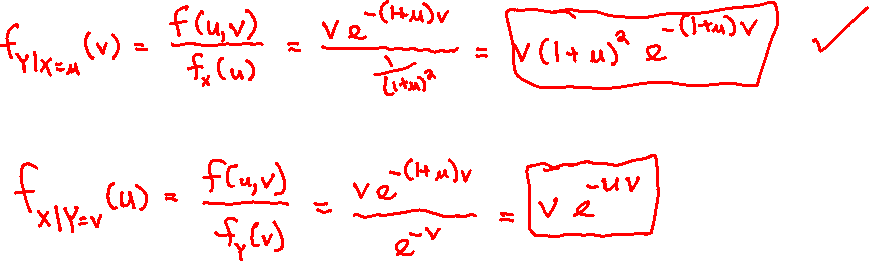 f_{Y|X=u}(v) = \frac{f(u,v)}{f_X(u)} = \frac{v e^{-(1+u)v}}{\frac{1}{(1+u)^2}} = v(1+u)^2 e^{-(1+u)v} ✓
f_{X|Y=v}(u) = \frac{f(u,v)}{f_Y(v)} = \frac{v e^{-(1+u)v}}{e^{-v}} = v e^{-uv}